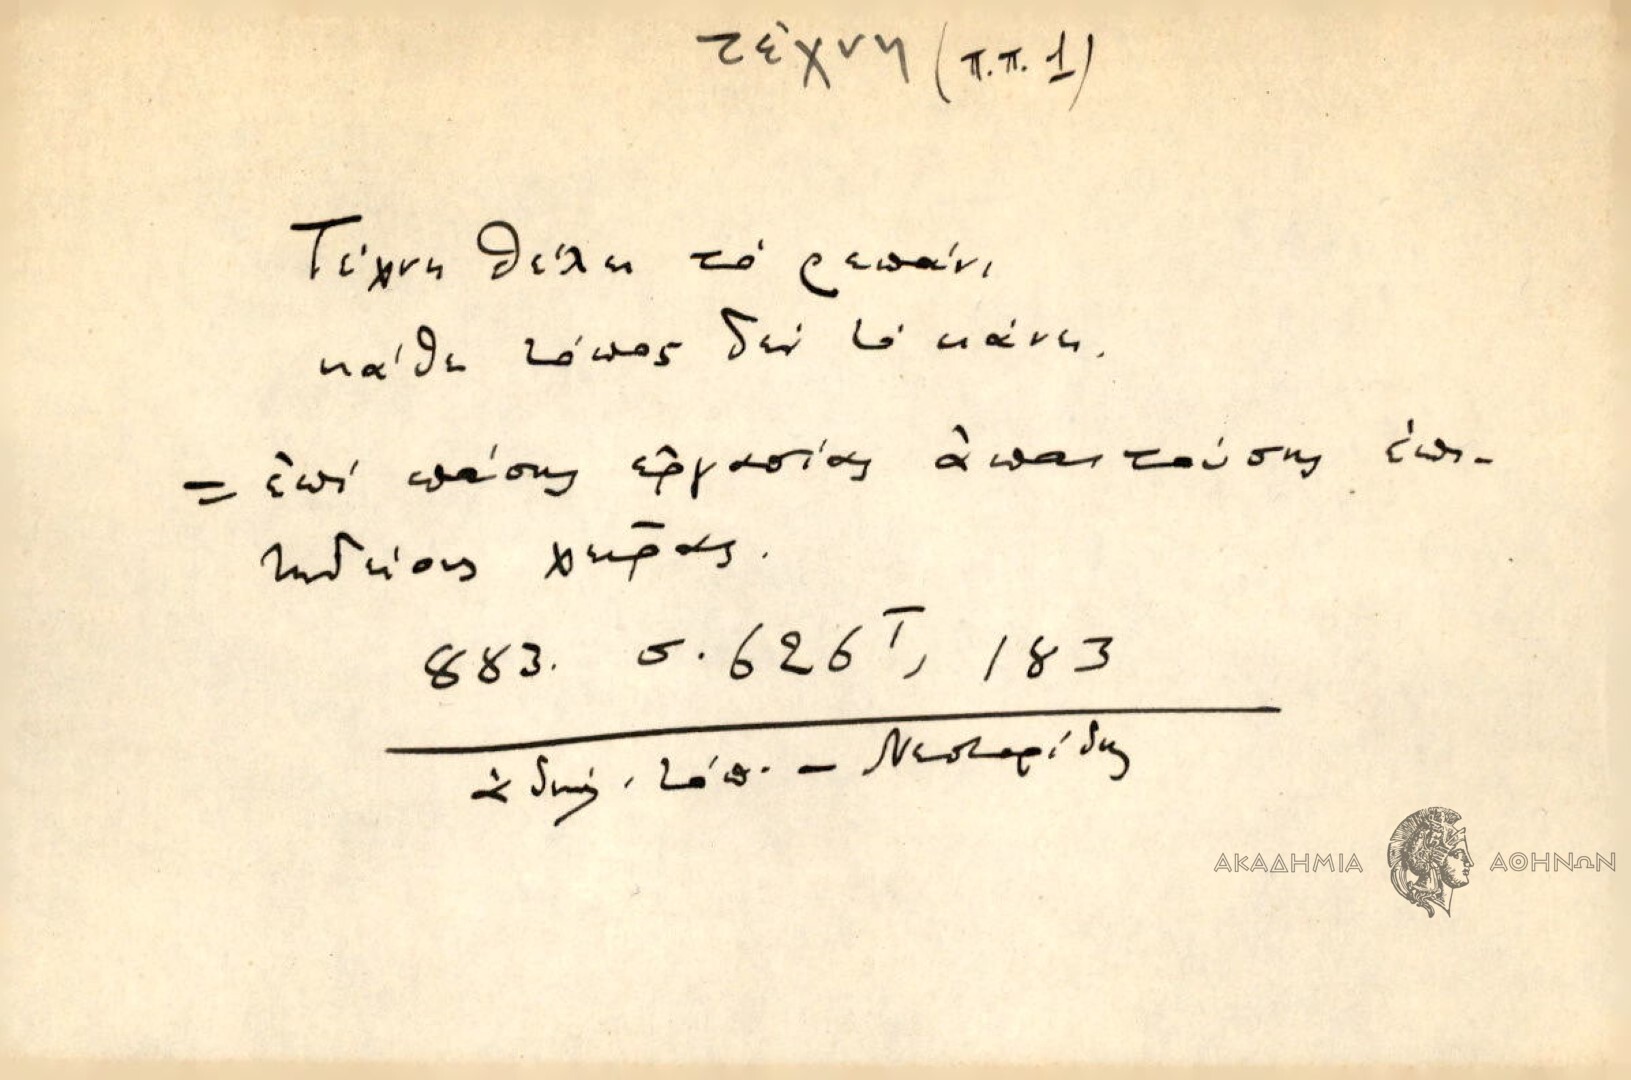 τέχνη (π.π. 1)
Τέχνη θέλει τό ρεπάνι
κάθε τόπος δέν τό κάνει.
= ἐπί πάσης ἐργασίας ἀπαιτούσης ἐπι-
τηδείους χεῖρας.
883. σ. 626 Γ, 183
ἀδήλ. τόπ. - Νεστορίδης
ΑΚΑΔΗΜΙΑ ΑΘΗΝΩΝ